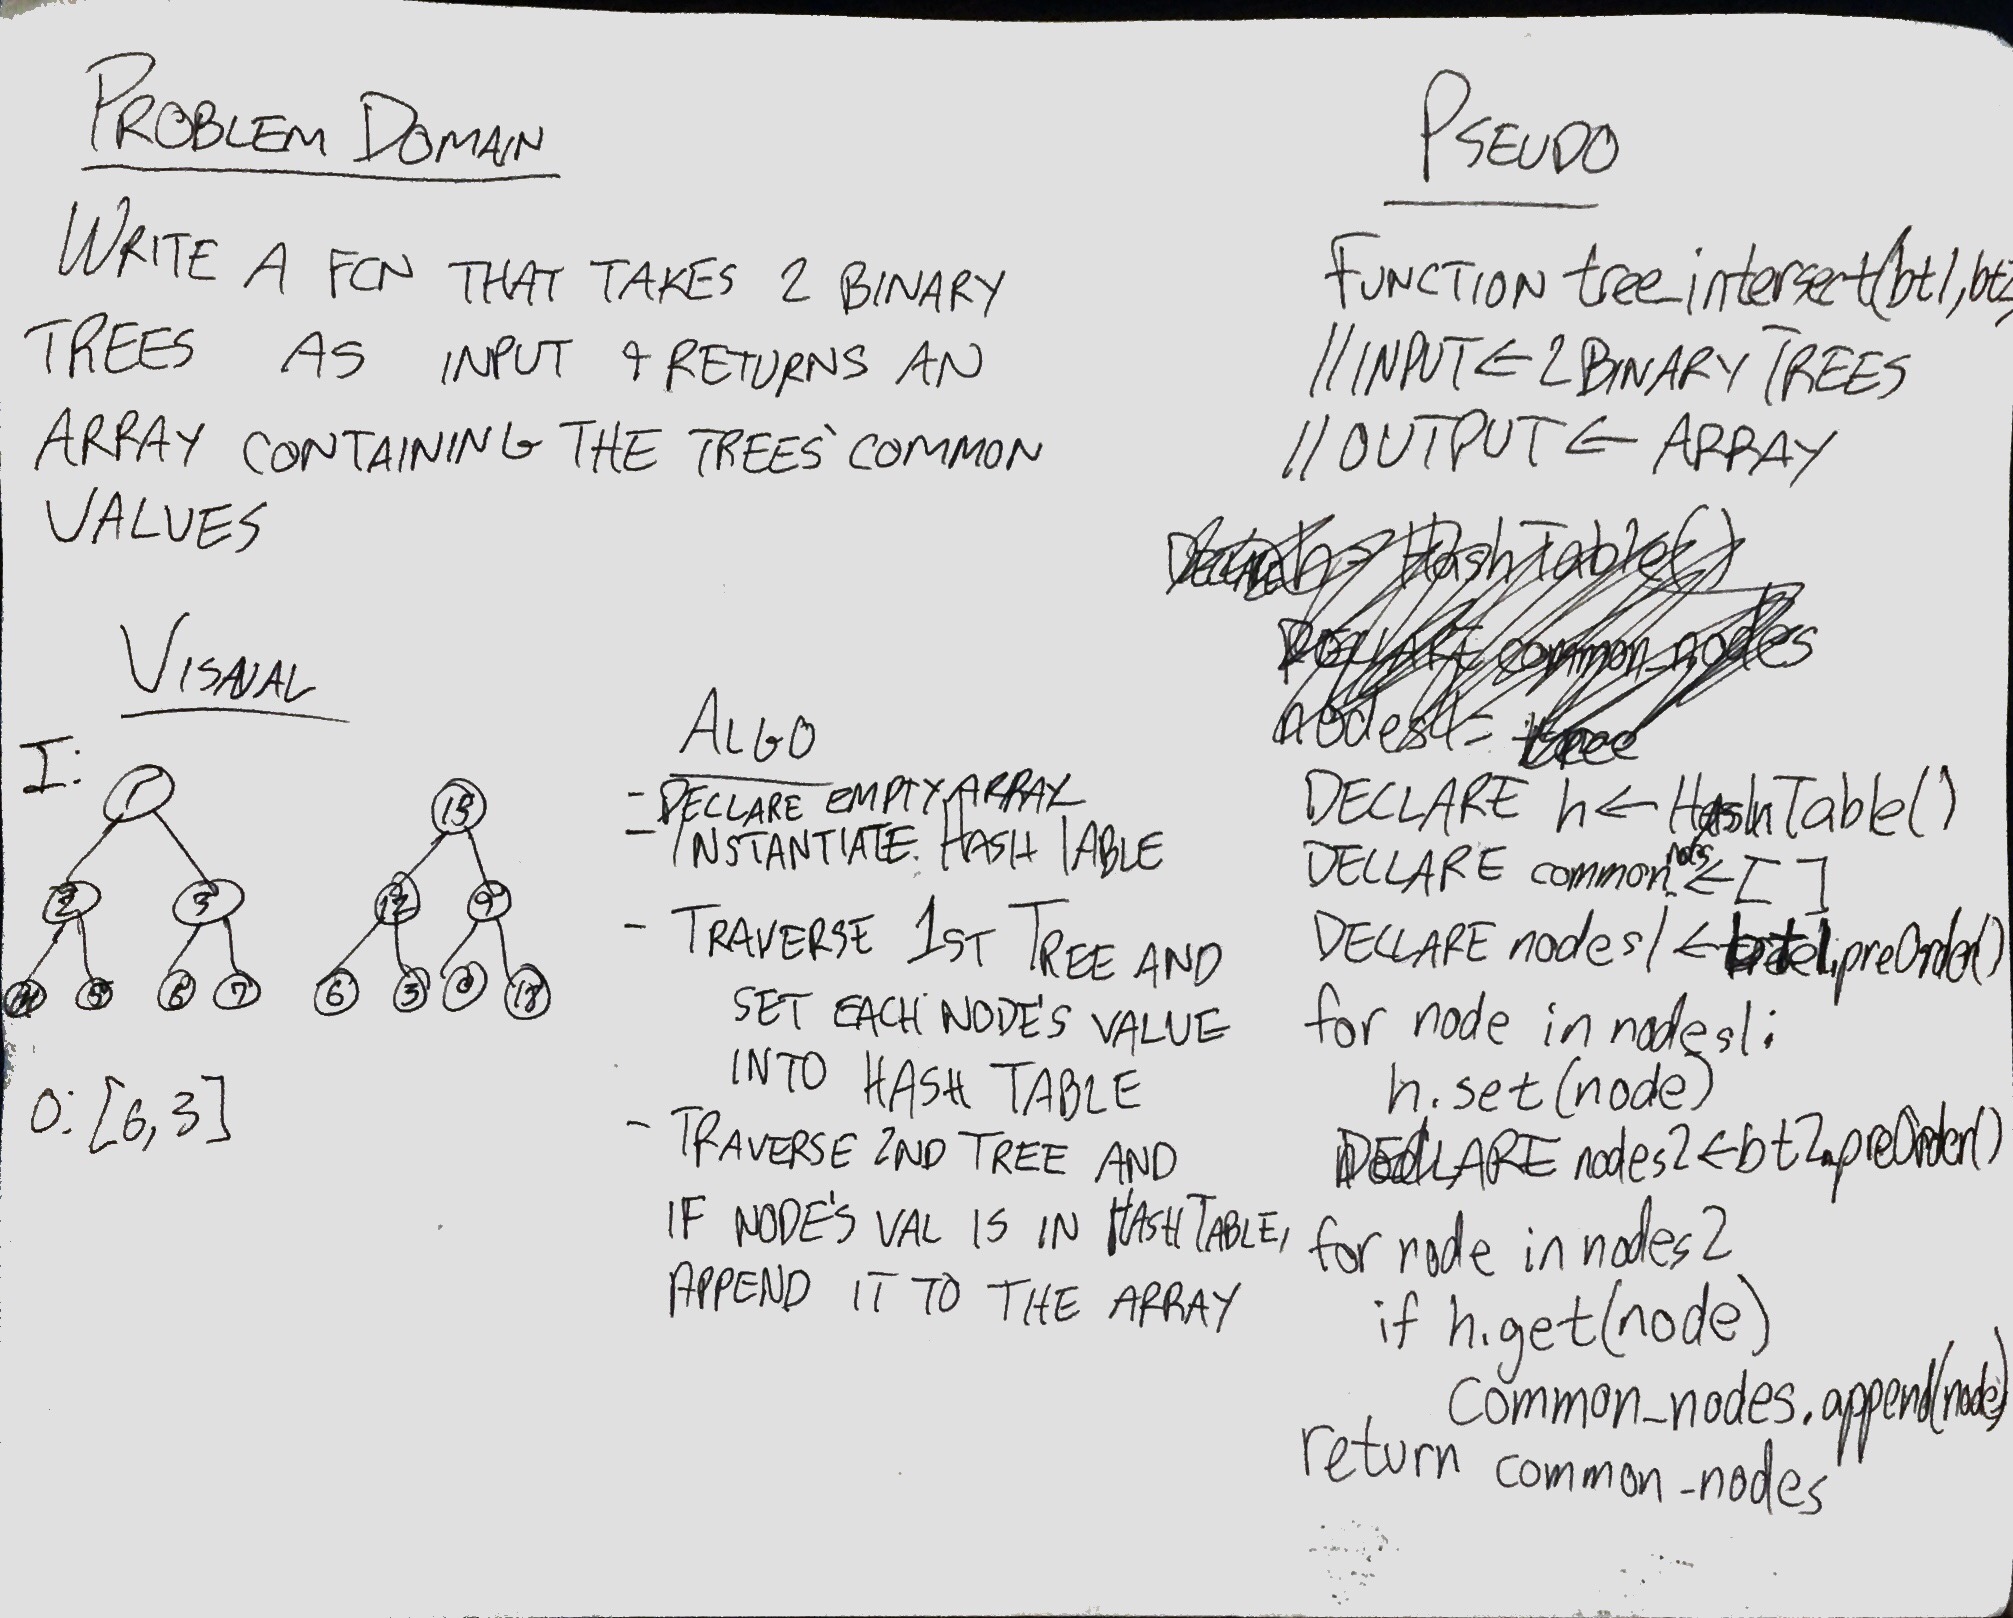 PROBLEM DOMAIN
WRITE A FCN THAT TAKES 2 BINARY
TREES AS INPUT & RETURNS AN
ARRAY CONTAINING THE TREES' COMMON
VALUES
VISUAL
I:
1
2 3
5 6 7
15
12 9
6 3 18
O: [6,3]
ALGO
- DECLARE EMPTY ARRAY
- INSTANTIATE HASH TABLE
- TRAVERSE 1ST TREE AND
SET EACH NODE'S VALUE
INTO HASH TABLE
- TRAVERSE 2ND TREE AND
IF NODE'S VAL IS IN HASH TABLE,
APPEND IT TO THE ARRAY
PSEUDO
FUNCTION tree_intersect(bt1,bt2)
//INPUT ← 2 BINARY TREES
//OUTPUT ← ARRAY
DECLARE h = HashTable()
DECLARE common_nodes
nodes1 = tree
DECLARE h ← HashTable()
DECLARE common ← []
DECLARE nodes1 ← bt1.preOrder()
for node in nodes1:
h.set(node)
DECLARE nodes2 ← bt2.preOrder()
for node in nodes2
if h.get(node)
common_nodes.append(node)
return common_nodes